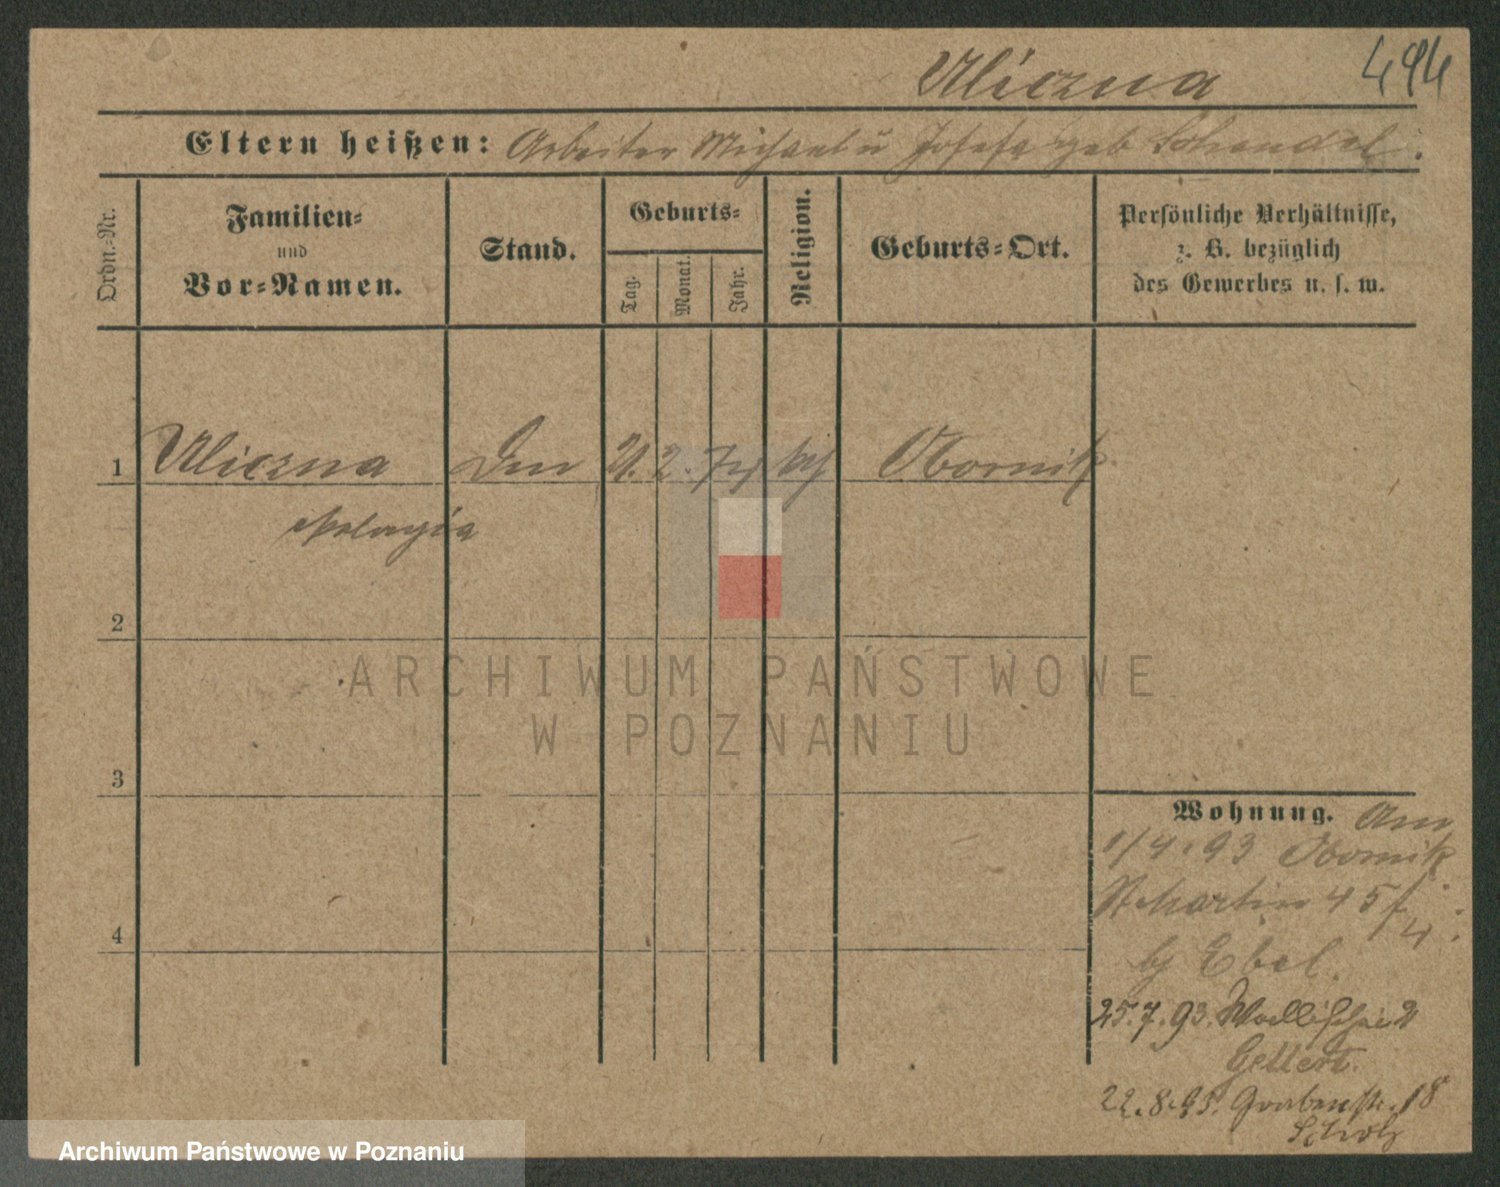 Uliczna 494
Eltern heißen: Arbeiter Michael u Josefa geb Schendel.
Ordn.-Nr.
Familien-
und
Vor-Namen.
Stand.
Geburts-
Tag.
Monat.
Jahr.
Religion.
Geburts-Ort.
Persönliche Verhältnisse,
z. B. bezüglich
des Gewerbes u. s. w.
1 Uliczna 21. 2. Obornik
Pelagia
2
3
4
Wohnung. Am
1/4. 93 Obornik
St Martin 45
bj Ebel.
25.7.93. Wallischei 2
Gellert.
22.8.93. Grabenstr. 18
Scholz
ARCHIWUM PAŃSTWOWE
W POZNANIU
Archiwum Państwowe w Poznaniu